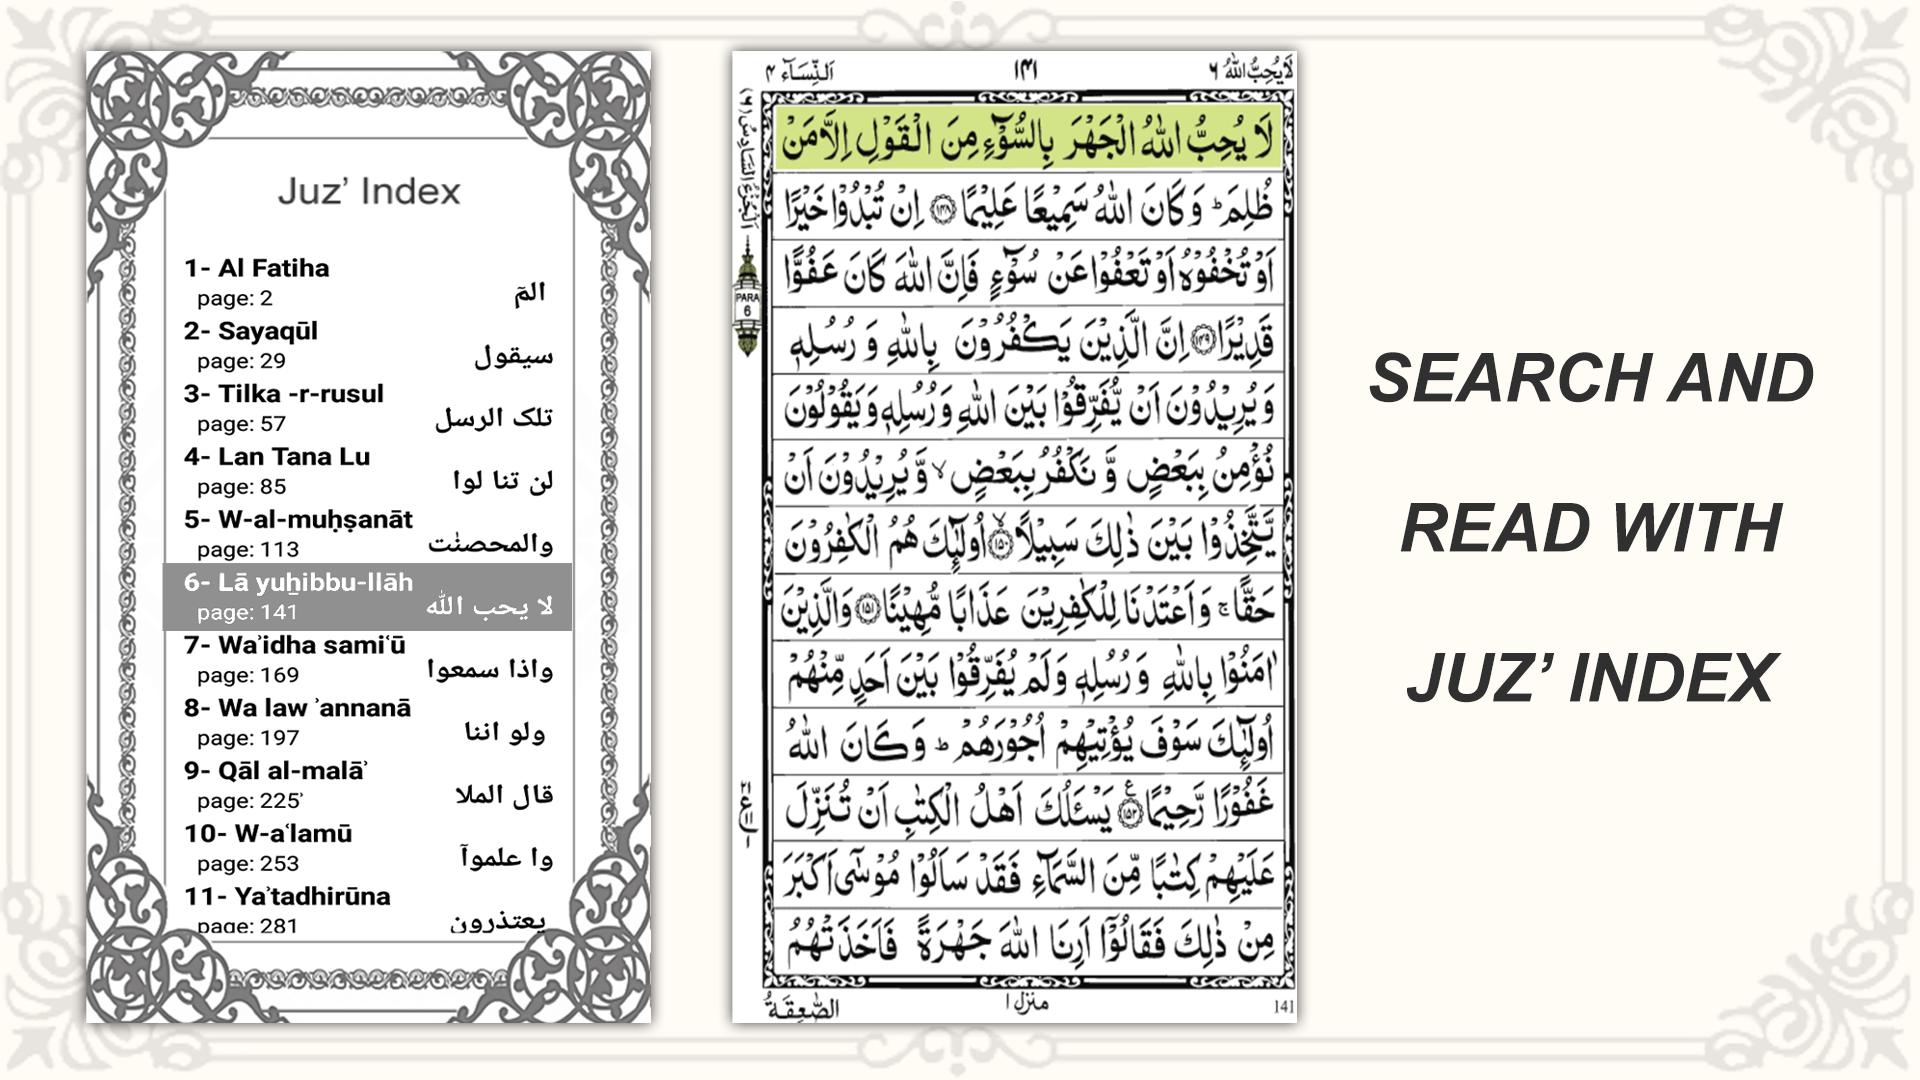 Juz’ Index
1- Al Fatiha
page: 2
الۤمّ
2- Sayaqūl
page: 29
سيقول
3- Tilka -r-rusul
page: 57
تلک الرسل
4- Lan Tana Lu
page: 85
لن تنا لوا
5- W-al-muḥṣanāt
page: 113
والمحصنٰت
6- Lā yuẖibbu-llāh
page: 141
لا يحب الله
7- Waʾidha samiʿū
page: 169
واذا سمعوا
8- Wa law ʾannanā
page: 197
ولو اننا
9- Qāl al-malāʾ
page: 225ʾ
قال الملا
10- W-aʿlamū
page: 253
وا علموآ
11- Yaʾtadhirūna
page: 281
يعتذرون
لَايُحِبُّ اللّٰهُ ۶
۱۴۱
اَلنِّسَآء ۴
لَا يُحِبُّ اللّٰهُ الْجَهْرَ بِالسُّوْٓءِ مِنَ الْقَوْلِ اِلَّا مَنْ
ظُلِمَ ؕ وَ كَانَ اللّٰهُ سَمِيْعًا عَلِيْمًا ۝۱۴۸ اِنْ تُبْدُوْا خَيْرًا
اَوْ تُخْفُوْهُ اَوْ تَعْفُوْا عَنْ سُوْٓءٍ فَاِنَّ اللّٰهَ كَانَ عَفُوًّا
قَدِيْرًا ۝۱۴۹ اِنَّ الَّذِيْنَ يَكْفُرُوْنَ بِاللّٰهِ وَ رُسُلِهٖ
وَ يُرِيْدُوْنَ اَنْ يُّفَرِّقُوْا بَيْنَ اللّٰهِ وَ رُسُلِهٖ وَ يَقُوْلُوْنَ
نُؤْمِنُ بِبَعْضٍ وَّ نَكْفُرُ بِبَعْضٍ ۙ وَّ يُرِيْدُوْنَ اَنْ
يَّتَّخِذُوْا بَيْنَ ذٰلِكَ سَبِيْلًا ۝۱۵۰ۙ اُولٰٓئِكَ هُمُ الْكٰفِرُوْنَ
حَقًّا ۚ وَ اَعْتَدْنَا لِلْكٰفِرِيْنَ عَذَابًا مُّهِيْنًا ۝۱۵۱ وَ الَّذِيْنَ
اٰمَنُوْا بِاللّٰهِ وَ رُسُلِهٖ وَ لَمْ يُفَرِّقُوْا بَيْنَ اَحَدٍ مِّنْهُمْ
اُولٰٓئِكَ سَوْفَ يُؤْتِيْهِمْ اُجُوْرَهُمْ ؕ وَ كَانَ اللّٰهُ
غَفُوْرًا رَّحِيْمًا ۝۱۵۲ع يَسْـَٔلُكَ اَهْلُ الْكِتٰبِ اَنْ تُنَزِّلَ
عَلَيْهِمْ كِتٰبًا مِّنَ السَّمَآءِ فَقَدْ سَاَلُوْا مُوْسٰٓى اَكْبَرَ
مِنْ ذٰلِكَ فَقَالُوْٓا اَرِنَا اللّٰهَ جَهْرَةً فَاَخَذَتْهُمُ
الصّٰعِقَةُ
منزل ۱
141
اَلْجُزْءُ السَّادِسُ (۶)
PARA
6
SEARCH AND
READ WITH
JUZ’ INDEX